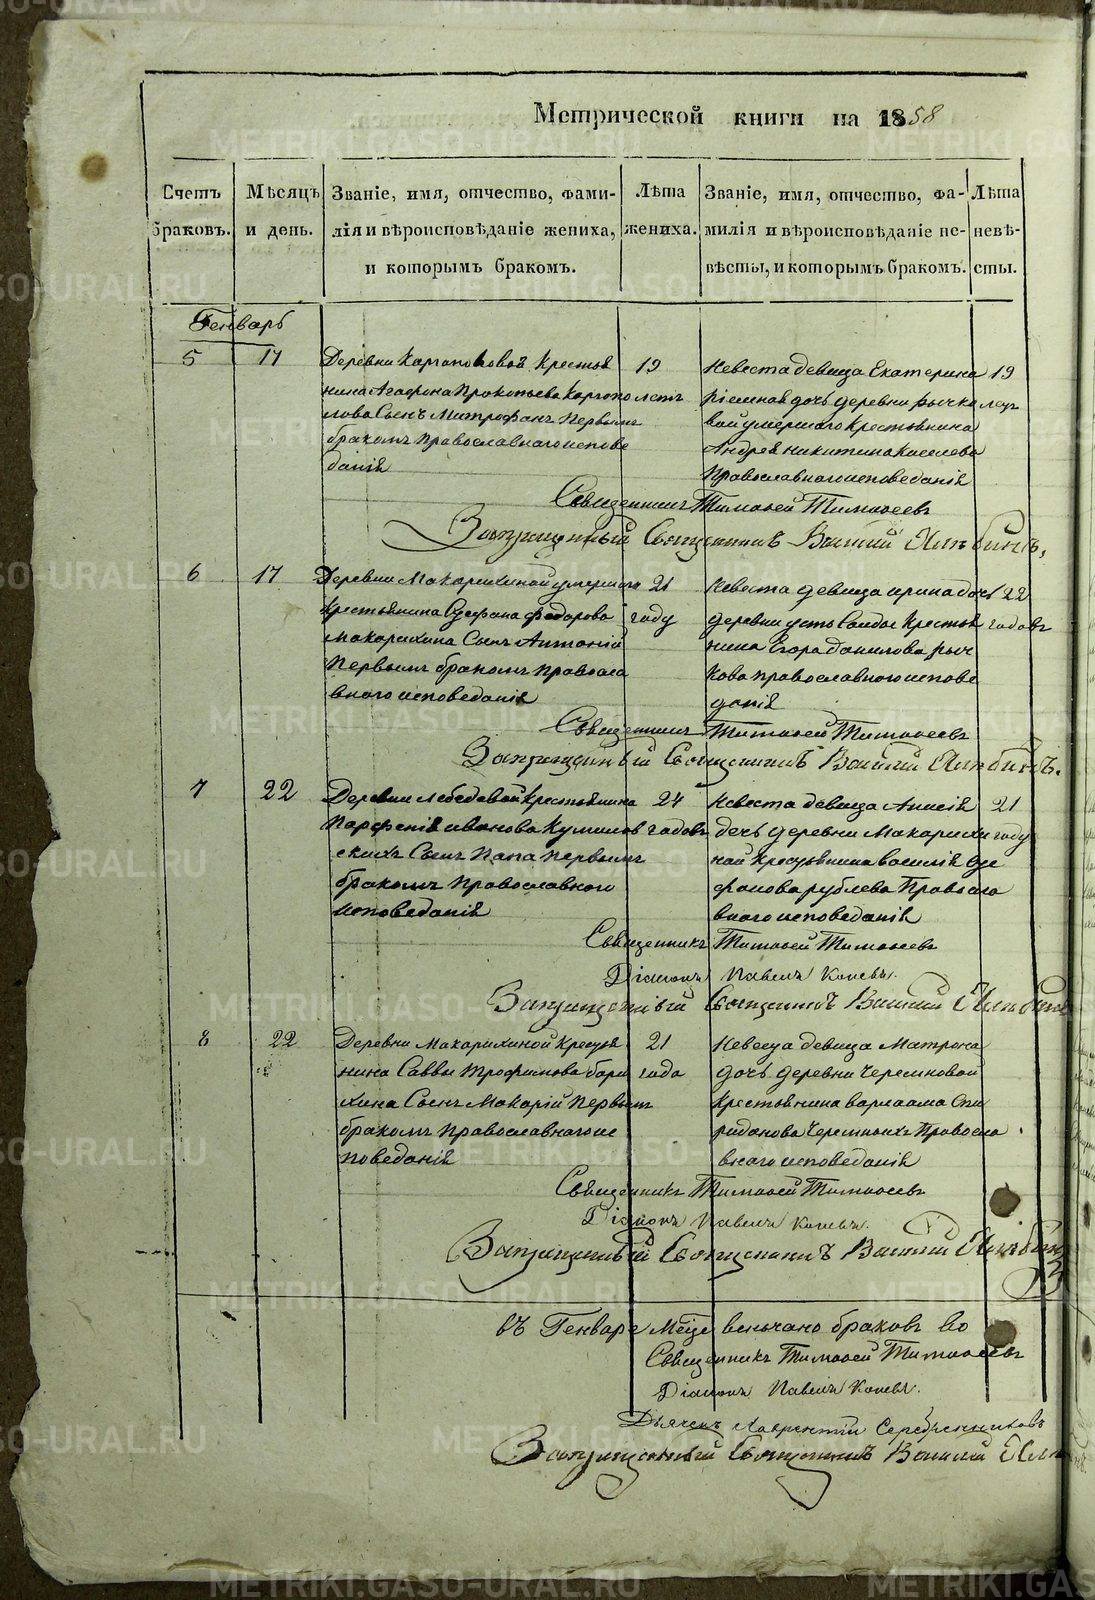 Метрической книги на 1858
Счетъ браковъ.
Мѣсяцъ и день.
Званіе, имя, отчество, фами-
лія и вѣроисповѣданіе жениха,
и которымъ бракомъ.
Лѣта
жениха.
Званіе, имя, отчество, фа-
милія и вѣроисповѣданіе не-
вѣсты, и которымъ бракомъ.
Лѣта
невѣ-
сты.
Генварь
5 17
Деревни Каргаполовой Крестья
нина Агафона Прокопьева Каргапо
лова Сынъ Митрофанъ Первымъ
бракомъ православнаго испове
данія
19
летъ
Невеста девица Екатерина
дочь деревни Рычко
вой умершаго Крестьянина
Андрея Никитина Киселева
Православнаго исповеданія
19
лет
Священникъ Тимофей Тимофеевъ
Запрещенный Священникъ Василій
6 17
Деревни Макарихиной умершаго
Крестьянина Федорова
Макарихина Сынъ Антоній
Первымъ бракомъ правосла
внаго исповеданія
21
году
Невеста девица Ирина дочь
деревни усть Крестья
нина Егора Данилова Рыч
кова православнаго испове
данія
22
годовъ
Священникъ Тимофей Тимофеевъ
Запрещенный Священникъ Василій
7 22
Деревни Лебедевой Крестьянина
Парфенія Иванова
скихъ Сынъ Папа Первымъ
бракомъ Православнаго
исповеданія
24
годовъ
Невеста девица Анисія
дочь деревни Макарихи
ной Крестьянина Василія Сте
фанова Рублева Правосла
внаго исповеданія
21
году
Священникъ Тимофей Тимофеевъ
Діаконъ Павелъ Коневъ.
Запрещенный Священникъ Василій
8 22
Деревни Макарихиной Крестья
нина Саввы Трофимова
хина Сынъ Макарій Первымъ
бракомъ Православнаго ис
поведанія
21
года
Невеста девица Матрона
дочь деревни Черемновой
Крестьянина Варлаама Спи
ридонова Черемныхъ Правосла
внаго исповеданія
Священникъ Тимофей Тимофеевъ
Діаконъ Павелъ Коневъ.
Запрещенный Священникъ Василій
въ Генваре м͠це венчано браковъ
Священникъ Тимофей Тимофеевъ
Діаконъ Павелъ Коневъ.
Дьячекъ Лаврентій Серебренниковъ
Запрещенный Священникъ Василій
METRIKI.GASO-URAL.RU